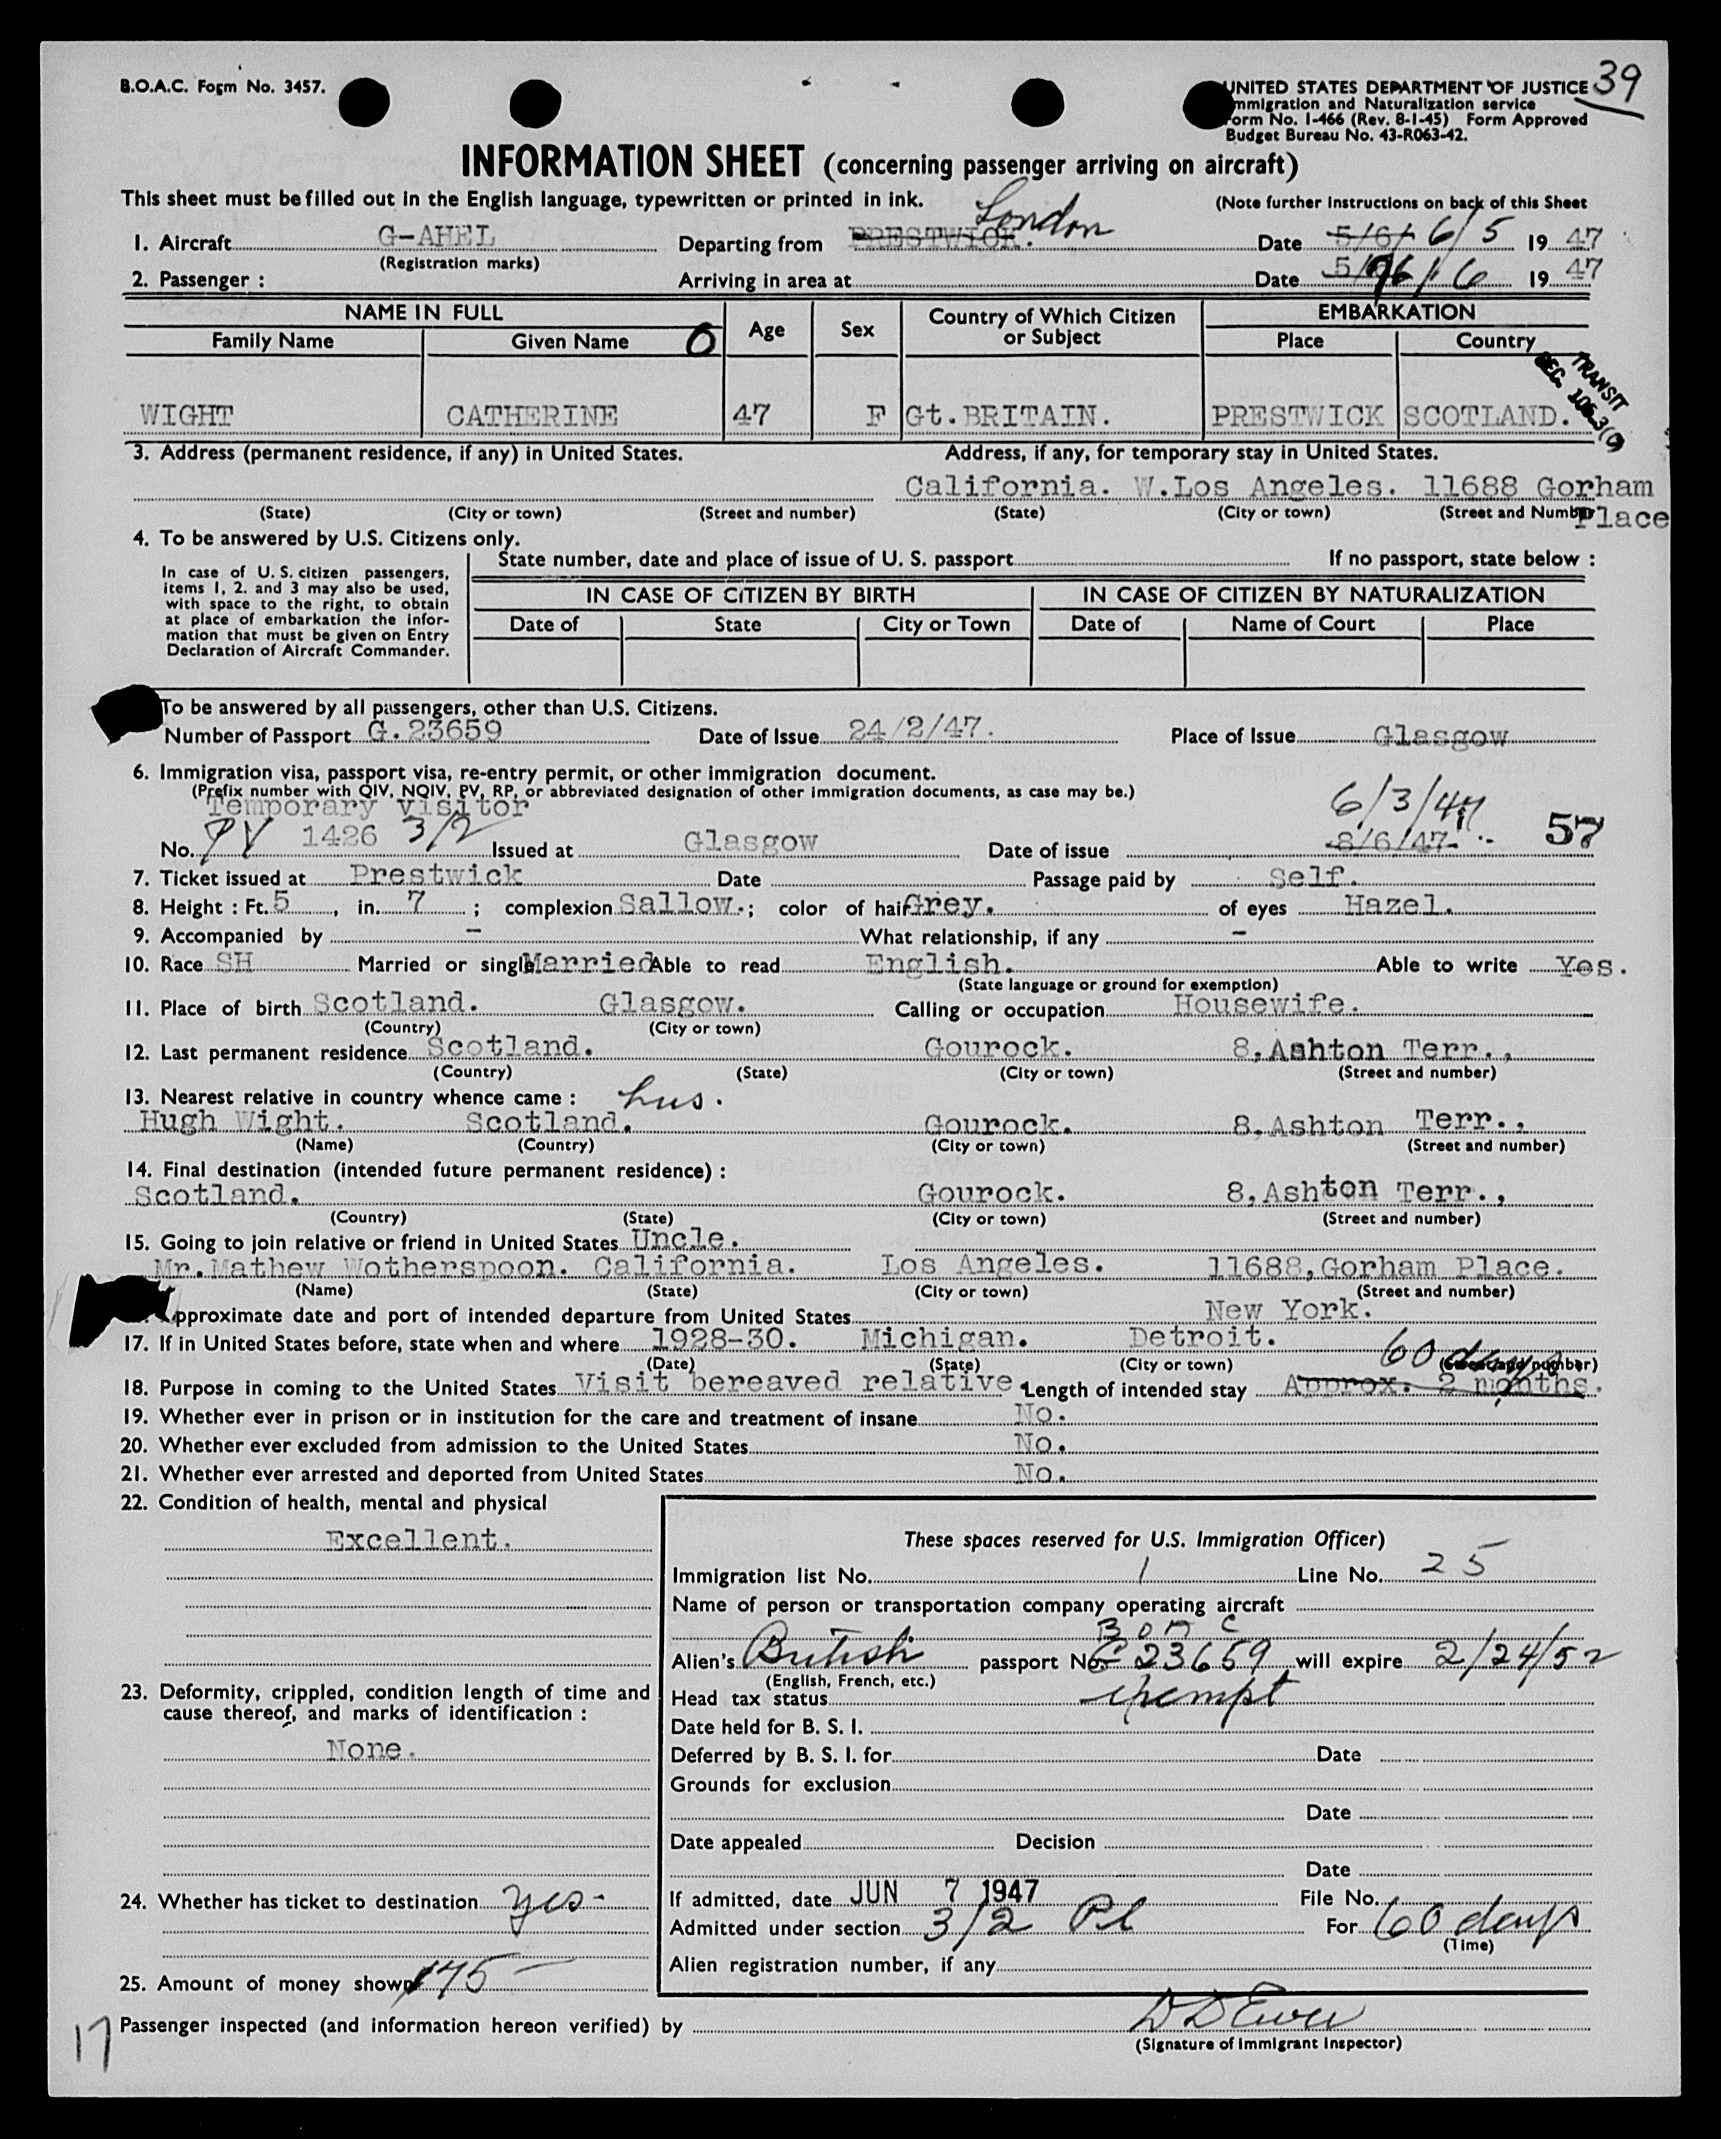 39
B.O.A.C. Form No. 3457.
UNITED STATES DEPARTMENT OF JUSTICE
Immigration and Naturalization service
Form No. I-466 (Rev. 8-1-45) Form Approved
Budget Bureau No. 43-R063-42.
INFORMATION SHEET (concerning passenger arriving on aircraft)
This sheet must be filled out in the English language, typewritten or printed in ink.
(Note further instructions on back of this Sheet
London
1. Aircraft G-AHEL Departing from PRESTWICK. Date 5/6/ 6/5 19 47
(Registration marks)
2. Passenger : Arriving in area at Date 6/6 19 47
NAME IN FULL Age Sex Country of Which Citizen or Subject EMBARKATION
Family Name Given Name O Place Country
TRANSIT
SEC. 106.3(c)
WIGHT CATHERINE 47 F Gt.BRITAIN. PRESTWICK SCOTLAND.
3. Address (permanent residence, if any) in United States. Address, if any, for temporary stay in United States.
California. W.Los Angeles. 11688 Gorham Place
(State) (City or town) (Street and number) (State) (City or town) (Street and Number)
4. To be answered by U.S. Citizens only.
State number, date and place of issue of U. S. passport If no passport, state below :
In case of U. S. citizen passengers,
items 1, 2. and 3 may also be used,
with space to the right, to obtain
at place of embarkation the infor-
mation that must be given on Entry
Declaration of Aircraft Commander.
IN CASE OF CITIZEN BY BIRTH IN CASE OF CITIZEN BY NATURALIZATION
Date of State City or Town Date of Name of Court Place
To be answered by all passengers, other than U.S. Citizens.
Number of Passport G.23659 Date of Issue 24/2/47. Place of Issue Glasgow
6. Immigration visa, passport visa, re-entry permit, or other immigration document.
(Prefix number with QIV, NQIV, PV, RP, or abbreviated designation of other immigration documents, as case may be.)
Temporary visitor 6/3/47 57
No. PV 1426 3/2 Issued at Glasgow Date of issue 8/6/47
7. Ticket issued at Prestwick Date Passage paid by Self.
8. Height : Ft. 5, in. 7 ; complexion Sallow. ; color of hair Grey. of eyes Hazel.
9. Accompanied by - What relationship, if any -
10. Race SH Married or single Married Able to read English. Able to write Yes.
(State language or ground for exemption)
11. Place of birth Scotland. Glasgow. Calling or occupation Housewife.
(Country) (City or town)
12. Last permanent residence Scotland. Gourock. 8,Ashton Terr.,
(Country) (State) (City or town) (Street and number)
13. Nearest relative in country whence came : hus.
Hugh Wight. Scotland. Gourock. 8,Ashton Terr.,
(Name) (Country) (City or town) (Street and number)
14. Final destination (intended future permanent residence) :
Scotland. Gourock. 8,Ashton Terr.,
(Country) (State) (City or town) (Street and number)
15. Going to join relative or friend in United States Uncle.
Mr.Mathew Wotherspoon. California. Los Angeles. 11688,Gorham Place.
(Name) (State) (City or town) (Street and number)
Approximate date and port of intended departure from United States New York.
17. If in United States before, state when and where 1928-30. Michigan. Detroit.
(Date) (State) (City or town) (Street and number)
60 days
18. Purpose in coming to the United States Visit bereaved relative. Length of intended stay Approx. 2 months.
19. Whether ever in prison or in institution for the care and treatment of insane No.
20. Whether ever excluded from admission to the United States No.
21. Whether ever arrested and deported from United States No.
22. Condition of health, mental and physical
Excellent.
23. Deformity, crippled, condition length of time and
cause thereof, and marks of identification :
None.
24. Whether has ticket to destination yes-
25. Amount of money shown 175 —
These spaces reserved for U.S. Immigration Officer)
Immigration list No. 1 Line No. 25
Name of person or transportation company operating aircraft
B O A C
Alien's British passport No. G 23659 will expire 2/24/52
(English, French, etc.)
Head tax status exempt
Date held for B. S. I.
Deferred by B. S. I. for Date
Grounds for exclusion
Date
Date appealed Decision
Date
If admitted, date JUN 7 1947 File No.
Admitted under section 3/2 Pl For 60 days
(Time)
Alien registration number, if any
17
Passenger inspected (and information hereon verified) by
(Signature of Immigrant Inspector)